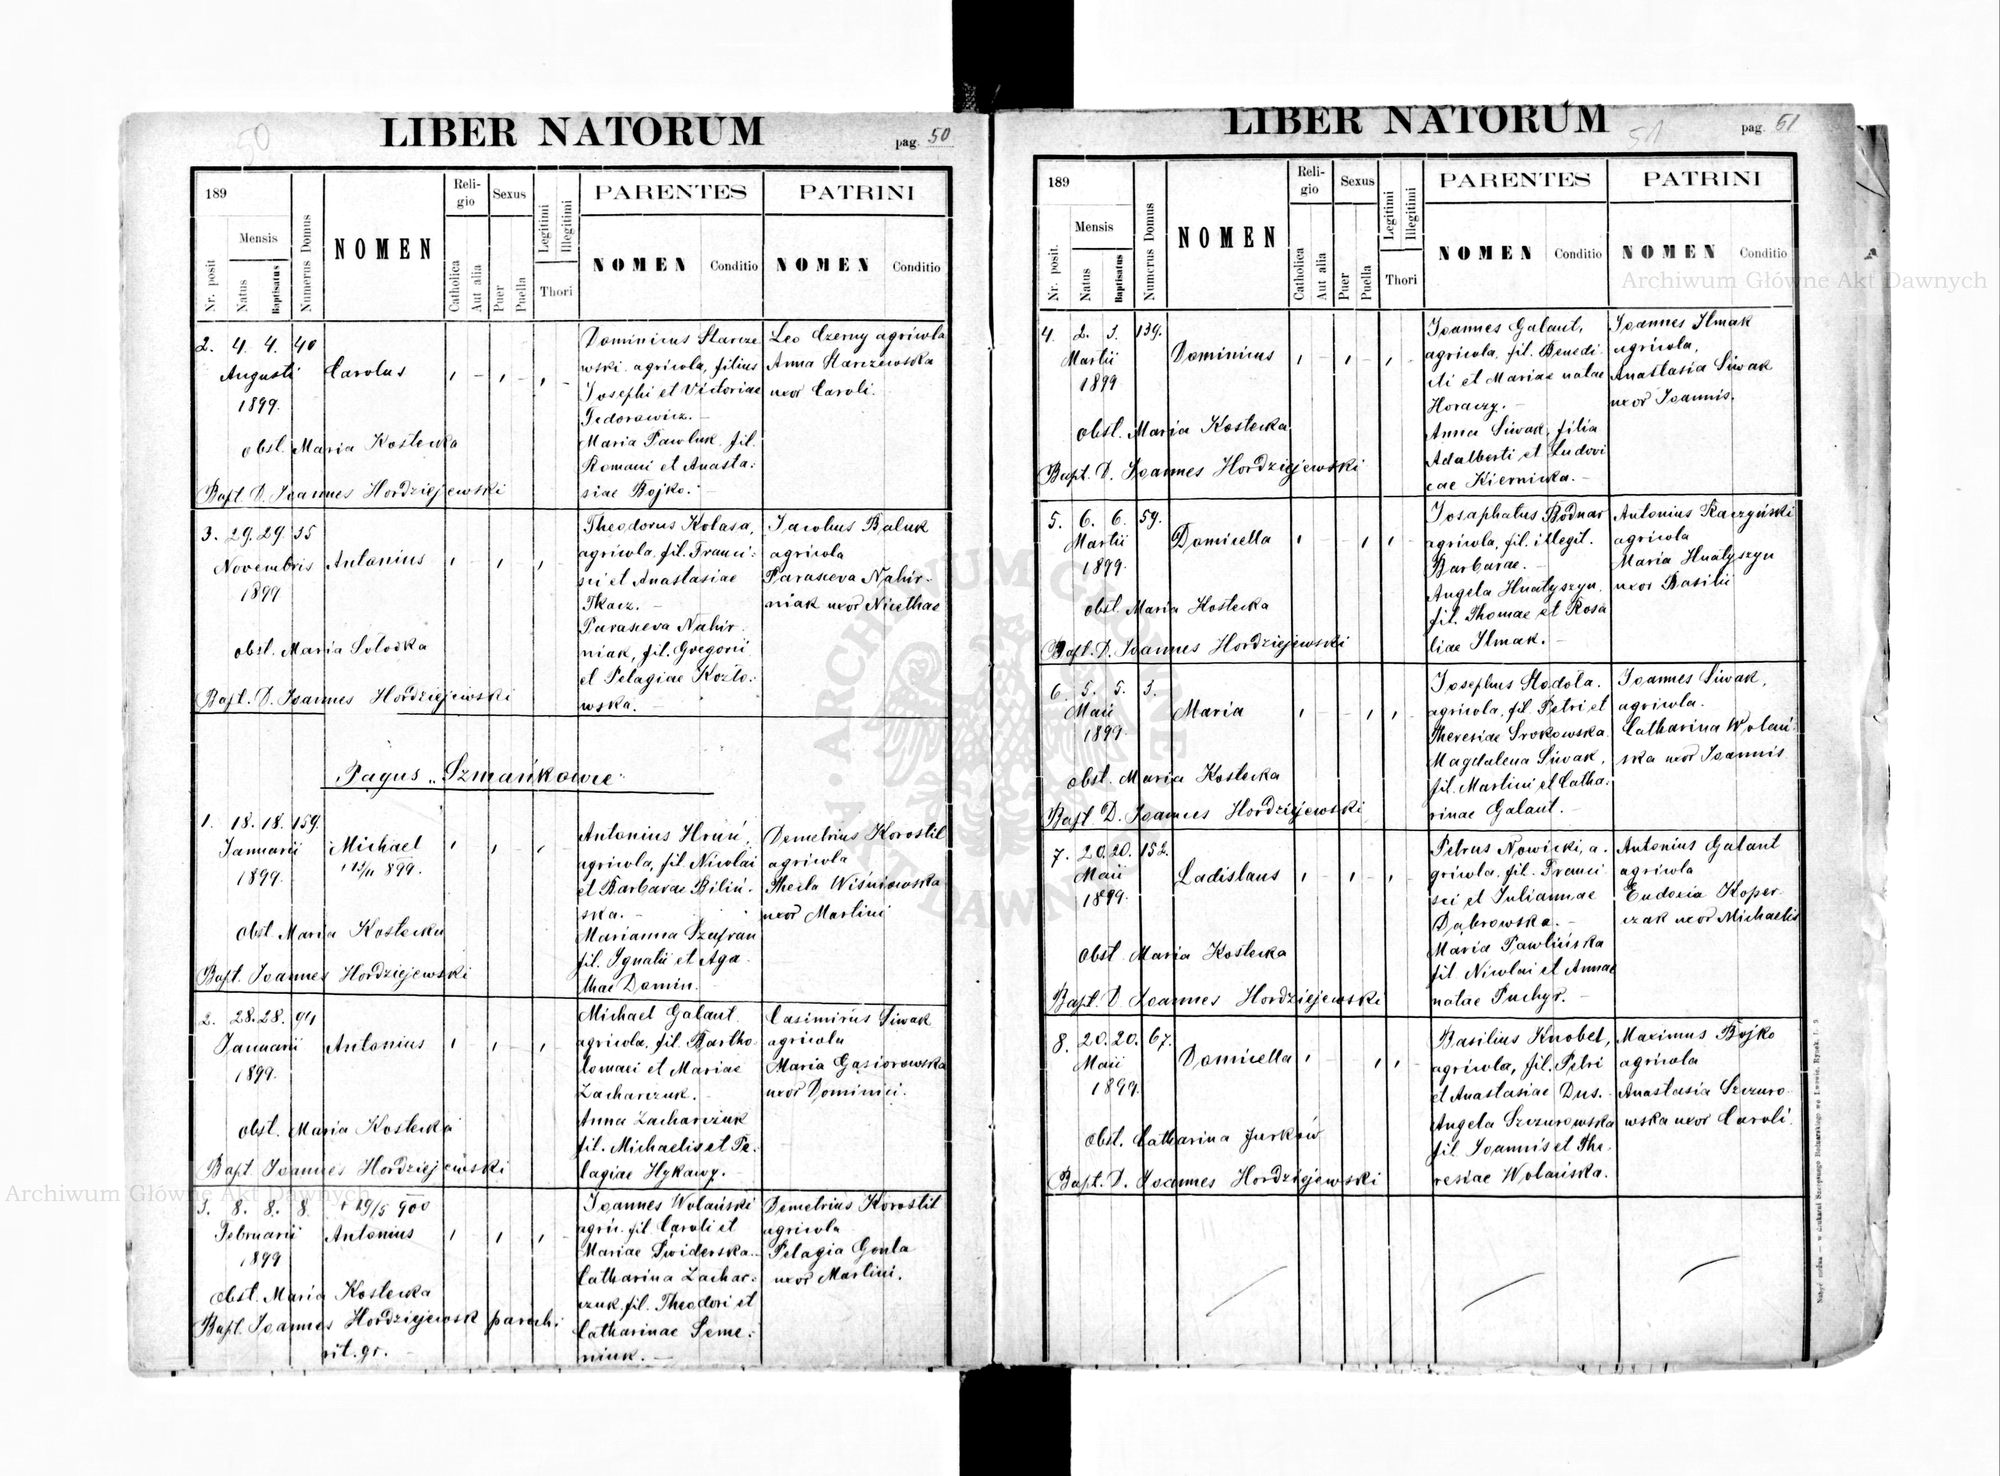 LIBER NATORUM
50
pag. 50
189
Mensis
Nr. posit
Natus
Baptisatus
Numerus Domus
NOMEN
Reli-
gio
Catholica
Aut alia
Sexus
Puer
Puella
Legitimi
Illegitimi
Thori
PARENTES
NOMEN
Conditio
PATRINI
NOMEN
Conditio
2. 4. 4. 40
Augusti
1899.
Carolus
obst. Maria Kostecka
Bapt. D. Joannes Hordziejewski
Dominicus Starcze
wski agricola, filius
Josephi et Victoriae
Fedorowicz.
Maria Pawluk, fil.
Romani et Anasta:
siae Bojko.
Leo Czerny agricola
Anna Starczewska
uxor Caroli.
3. 29. 29. 35
Novembris
1899
Antonius
obst. Maria Solocka
Bapt. D. Joannes Hordziejewski
Theodorus Kolasa,
agricola, fil. Franci:
sci et Anastasiae
Tkacz.
Parasceva Nahir.
niak, fil. Gregorii
et Pelagiae Kozło:
wska.
Jacobus Baluk
agricola
Parasceva Nahir.
niak uxor Nicethae
Pagus „Szmańkowce"
1. 18. 18. 159.
Januarii
1899.
Michael
obst. Maria Kostecka
Bapt. Joannes Hordziejewski
Antonius Hruń,
agricola, fil. Nicolai
et Barbarae Biliń.
ska.
Marianna Szafran
fil. Ignatii et Aga.
thae Domin.
Demetrius Korostil
agricola
Thecla Wiśniowska
uxor Martini
2. 28. 28. 94
Januarii
1899.
Antonius
obst. Maria Kostecka
Bapt. Joannes Hordziejewski
Michael Galant.
agricola, fil. Bartho
lomaei et Mariae
Zacharczuk.
Anna Zacharczuk
fil. Michaelis et Pe.
lagiae Hykawy.
Casimirus Siwak
agricola
Maria Gąsiorowska
uxor Dominici.
3. 8. 8. 8.
Februarii
1899
+ 29/5 900
Antonius
obst. Maria Kostecka
Bapt. Joannes Hordziejewsk paroch.
rit. gr.
Joannes Wolański
agric. fil. Caroli et
Mariae Świderska.
Catharina Zachar:
czuk, fil. Theodori et
Catharinae Seme:
niuk.
Demetrius Korostil
agricola
Pelagia Gonta
uxor Martini.
LIBER NATORUM
51
pag. 51
189
Mensis
Nr. posit.
Natus
Baptisatus
Numerus Domus
NOMEN
Reli-
gio
Catholica
Aut alia
Sexus
Puer
Puella
Legitimi
Illegitimi
Thori
PARENTES
NOMEN
Conditio
PATRINI
NOMEN
Conditio
4. 2. 3. 139.
Martii
1899
Dominicus
obst. Maria Kostecka
Bapt. D. Joannes Hordziejewski
Joannes Galant,
agricola, fil. Benedi
cti et Mariae natae
Horaczy.
Anna Siwak, filia
Adalberti et Ludovi
cae Kiernicka.
Joannes Ilmak
agricola,
Anastasia Siwak
uxor Joannis.
5. 6. 6. 59.
Martii
1899
Domicella
obst. Maria Kostecka
Bapt. D. Joannes Hordziejewski
Josaphatus Bodnar
agricola, fil. illegit.
Barbarae.
Angela Hnatyszyn,
fil. Thomae et Rosa
liae Ilmak.
Antonius Raczyński
agricola
Maria Hnatyszyn
uxor Basilii
6. 5. 5. 3.
Maii
1899
Maria
obst. Maria Kostecka
Bapt. D. Joannes Hordziejewski
Josephus Stodola.
agricola, fil. Petri et
Theresiae Srokowska
Magdalena Siwak,
fil. Martini et Catha:
rinae Galant.
Joannes Siwak,
agricola.
Catharina Wolań:
ska uxor Joannis
7. 20. 20. 152.
Maii
1899
Ladislaus
Obst. Maria Kostecka
Bapt. D. Joannes Hordziejewski
Petrus Nowicki, a.
gricola. fil. Franci
sci et Juliannae
Dąbrowska.
Maria Pawlińska
fil. Nicolai et Annae
natae Puchyr.
Antonius Galant
agricola
Eudoxia Koper.
czak uxor Michaelis
8. 20. 20. 67.
Maii
1899.
Domicella
Obst. Catharina Jurków
Bapt. D. Joannes Hordziejewski
Basilius Knobel,
agricola, fil. Petri
et Anastasiae Dus.
Angela Szczurowska
fil. Joannis et The.
resiae Wolańska.
Maximus Bojko
agricola
Anastasia Szczuro.
wska uxor Caroli.
Archiwum Główne Akt Dawnych
Archiwum Główne Akt Dawnych
ARCHIWUM GŁÓWNE AKT DAWNYCH